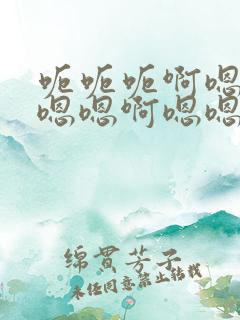 呃呃呃啊嗯
嗯嗯啊嗯嗯
绵贯芳子
未经同意禁止转载